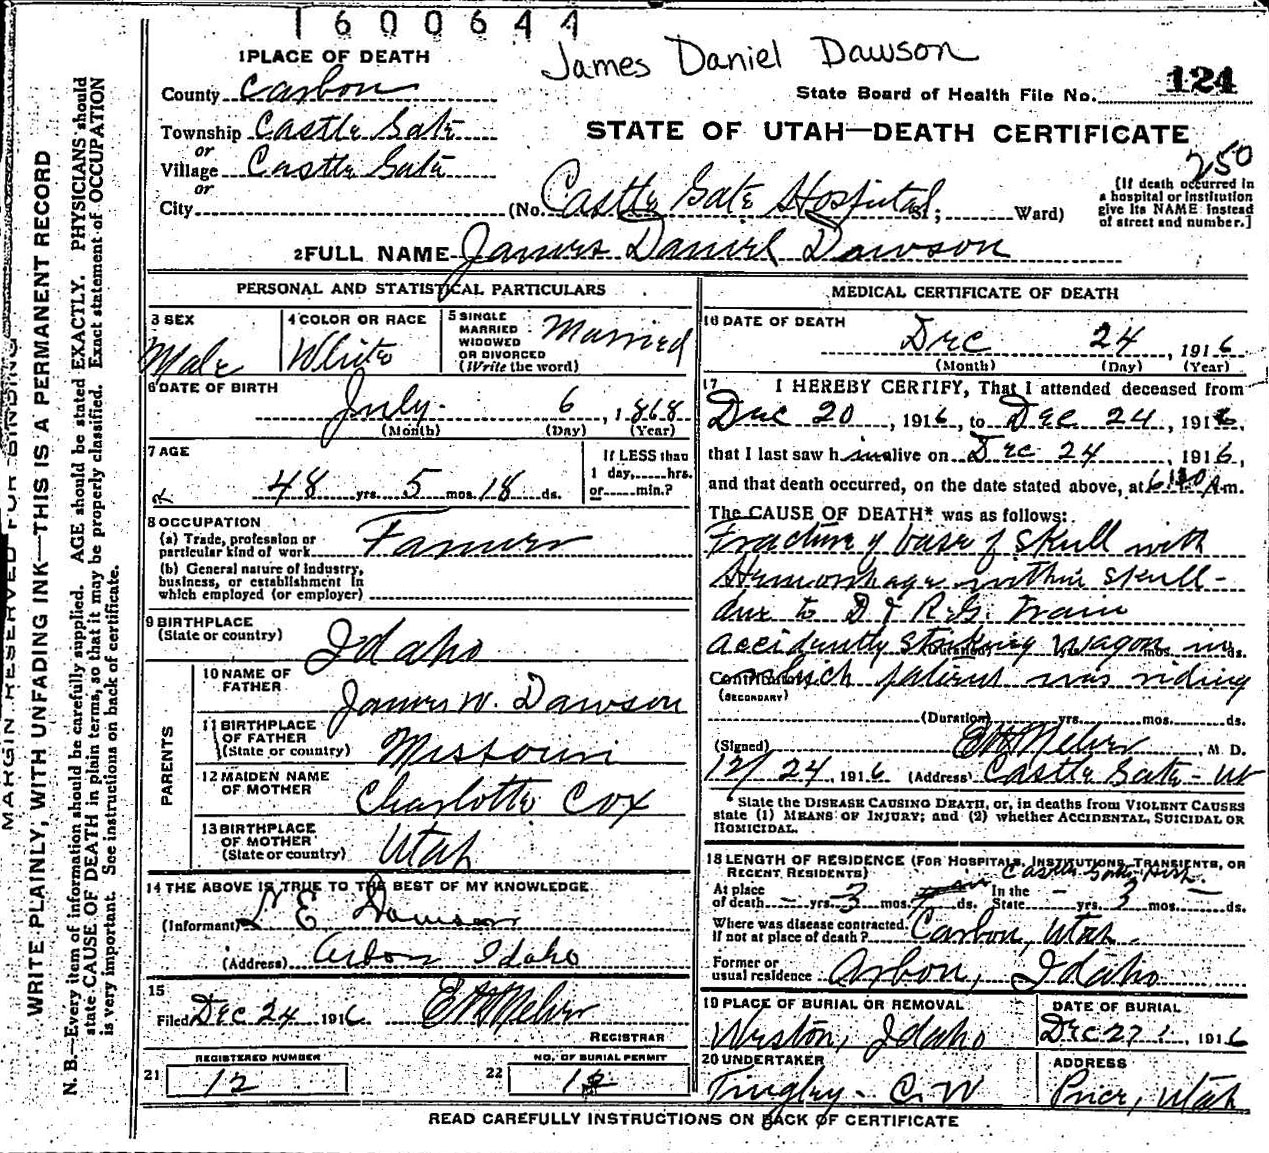 1600644
James Daniel Dawson
124
State Board of Health File No.
STATE OF UTAH—DEATH CERTIFICATE
250
1 PLACE OF DEATH
County Carbon
Township Castle Gate
or
Village Castle Gate
or
City (No. Castle Gate Hospital St; Ward)
[If death occurred in a hospital or institution give its NAME instead of street and number.]
2 FULL NAME James Daniel Dawson
PERSONAL AND STATISTICAL PARTICULARS
3 SEX
Male
4 COLOR OR RACE
White
5 SINGLE
MARRIED
WIDOWED
OR DIVORCED
(Write the word)
Married
6 DATE OF BIRTH
July 6, 1868
(Month) (Day) (Year)
7 AGE
48 yrs. 5 mos. 18 ds.
If LESS than
1 day, hrs.
or min.?
8 OCCUPATION
(a) Trade, profession or
particular kind of work Farmer
(b) General nature of industry,
business, or establishment in
which employed (or employer)
9 BIRTHPLACE
(State or country)
Idaho
PARENTS
10 NAME OF
FATHER
James W. Dawson
11 BIRTHPLACE
OF FATHER
(State or country) Missouri
12 MAIDEN NAME
OF MOTHER
Charlotte Cox
13 BIRTHPLACE
OF MOTHER
(State or country) Utah
14 THE ABOVE IS TRUE TO THE BEST OF MY KNOWLEDGE
(Informant) E Dawson
(Address) Arbon Idaho
15
Filed Dec 24 1916
REGISTRAR
REGISTERED NUMBER
21 12
NO. OF BURIAL PERMIT
22 12
MEDICAL CERTIFICATE OF DEATH
16 DATE OF DEATH
Dec 24, 1916
(Month) (Day) (Year)
17 I HEREBY CERTIFY, That I attended deceased from
Dec 20, 1916, to Dec 24, 1916,
that I last saw him alive on Dec 24, 1916,
and that death occurred, on the date stated above, at 6:30 A m.
The CAUSE OF DEATH* was as follows:
Fracture of base of skull with
Hemorrhage within skull -
due to D & R.G. Train
accidently striking wagon in
Contributory which patient was riding
(SECONDARY)
(Duration) yrs. mos. ds.
(Signed) M. D.
12/24, 1916 (Address) Castle Gate - Ut
* State the DISEASE CAUSING DEATH, or, in deaths from VIOLENT CAUSES
state (1) MEANS OF INJURY; and (2) whether ACCIDENTAL, SUICIDAL OR
HOMICIDAL.
18 LENGTH OF RESIDENCE (FOR HOSPITALS, INSTITUTIONS, TRANSIENTS, OR
RECENT RESIDENTS) Castle Gate Hosp.
At place
of death - yrs. 3 mos. ds. In the State - yrs. 3 mos. - ds.
Where was disease contracted.
If not at place of death? Carbon, Utah.
Former or
usual residence Arbon, Idaho
19 PLACE OF BURIAL OR REMOVAL
Weston, Idaho
DATE OF BURIAL
Dec 27, 1916
20 UNDERTAKER
Tingley - C. W
ADDRESS
Price, Utah
READ CAREFULLY INSTRUCTIONS ON BACK OF CERTIFICATE
MARGIN RESERVED FOR BINDING
WRITE PLAINLY, WITH UNFADING INK—THIS IS A PERMANENT RECORD
N. B.—Every item of information should be carefully supplied. AGE should be stated EXACTLY. PHYSICIANS should
state CAUSE OF DEATH in plain terms, so that it may be properly classified. Exact statement of OCCUPATION
is very important. See instructions on back of certificate.